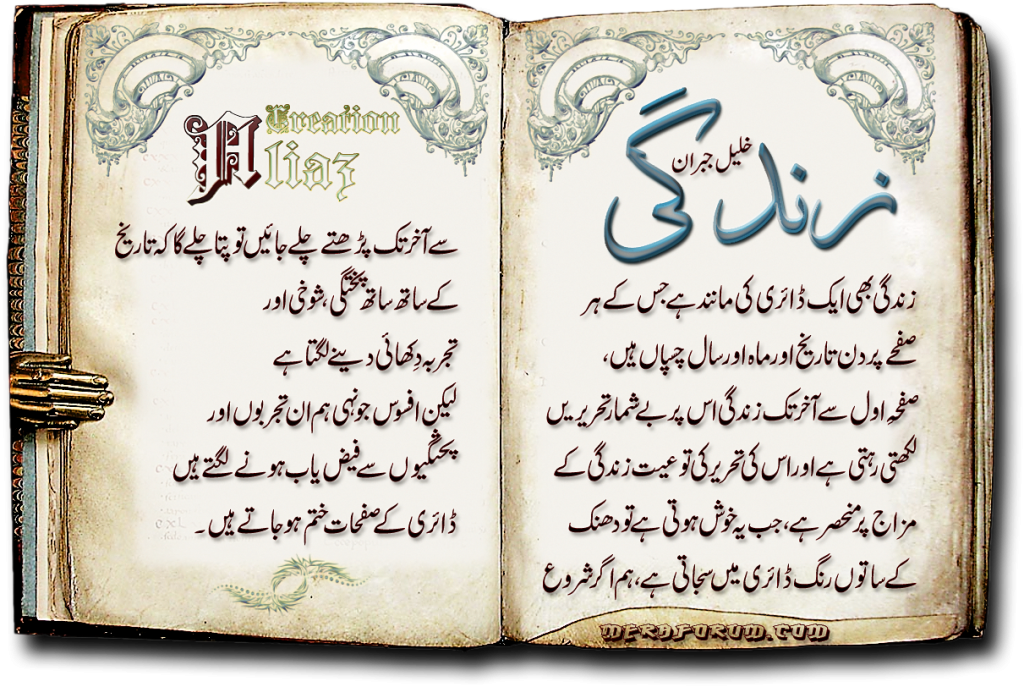 زندگی
خلیل جبران
زندگی بھی ایک ڈائری کی مانند ہے جس کے ہر
صفحے پر دن تاریخ اور ماہ اور سال چسپاں ہیں،
صفحہِ اول سے آخر تک زندگی اس پر بے شمار تحریریں
لکھتی رہتی ہے اور اس کی تحریر کی توعیت زندگی کے
مزاج پر منحصر ہے، جب یہ خوش ہوتی ہے تو دھنک
کے ساتوں رنگ ڈائری میں سجاتی ہے، ہم اگر شروع
MERAFORUM.COM
Creation
Aliaz
سے آخر تک پڑھتے چلے جائیں تو پتا چلے گا کہ تاریخ
کے ساتھ ساتھ پختگی، شوخی اور
تجربہ دِکھائی دینے لگتا ہے
لیکن افسوس جونہی ہم ان تجربوں اور
پختگیوں سے فیض یاب ہونے لگتے ہیں
ڈائری کے صفحات ختم ہو جاتے ہیں۔